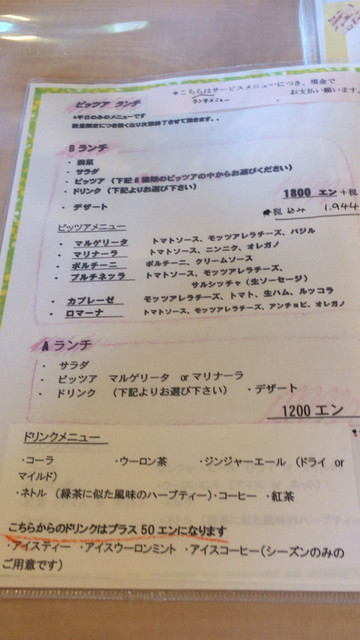 *こちらはサービスメニューにつき、現金で
お支払い願います。
ランチメニュー
ピッツア ランチ
*平日のみのメニューです
数量限定につき無くなり次第終了させて頂きます。。
B ランチ
・ 前菜
・ サラダ
・ ピッツァ (下記6種類のピッツアの中からお選びください)
・ ドリンク (下記よりお選び下さい)
・ デザート
1800 エン +税
税込み 1.944
ピッツアメニュー
・ マルゲリータ トマトソース、モッツアレラチーズ、バジル
・ マリナーラ トマトソース、ニンニク、オレガノ
・ ポルチーニ ポルチーニ、クリームソース
・ プルチネッラ トマトソース、モッツアレラチーズ、
サルシッチャ (生ソーセージ)
・ カプレーゼ モッツアレラチーズ、トマト、生ハム、ルッコラ
・ ロマーナ トマトソース、モッツアレラチーズ、アンチョビ、オレガノ
A ランチ
・ サラダ
・ ピッツア マルゲリータ orマリナーラ
・ ドリンク (下記よりお選び下さい) ・デザート
1200 エン
ドリンクメニュー
・コーラ ・ウーロン茶 ・ジンジャーエール (ドライ or
マイルド)
・ネトル (緑茶に似た風味のハーブティー)・コーヒー ・紅茶
こちらからのドリンクはプラス 50 エンになります
・アイスティー ・アイスウーロンミント ・アイスコーヒー(シーズンのみの
ご用意です)